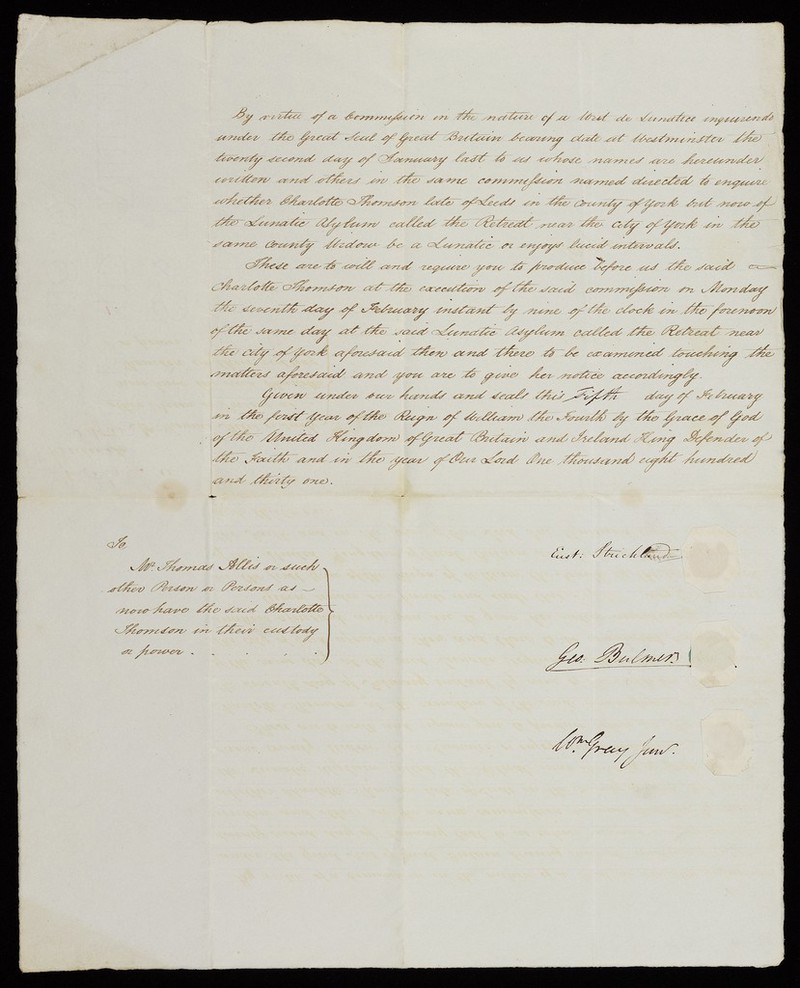 By virtue of a Commission in the nature of a Writ de Lunatico inquirendo
under the Great Seal of Great Britain bearing date at Westminster the
twenty second day of January last to us whose names are hereunder
written and others in the same commission named directed to enquire
whether Charlotte Thomson late of Leeds in the County of York but now of
the Lunatic Asylum called the Retreat near the City of York in the
same County Widow be a Lunatic or enjoys lucid intervals.
These are to will and require you to produce before us the said
Charlotte Thomson at the execution of the said commission on Monday
the seventh day of February instant by nine of the clock in the forenoon
of the same day at the said Lunatic Asylum called the Retreat near
the City of York aforesaid then and there to be examined touching the
matters aforesaid and you are to give her notice accordingly.
Given under our hands and seals this Fifth day of February
in the first Year of the Reign of William the Fourth by the Grace of God
of the United Kingdom of Great Britain and Ireland King Defender of
the Faith and in the year of Our Lord One thousand eight hundred
and thirty one.
To
Mr. Thomas Allis or such
other Person or Persons as
now have the said Charlotte
Thomson in their custody
or power . . . . .
Eust: Strickland
Geo. Bulmer
Wm. Gray Junr.